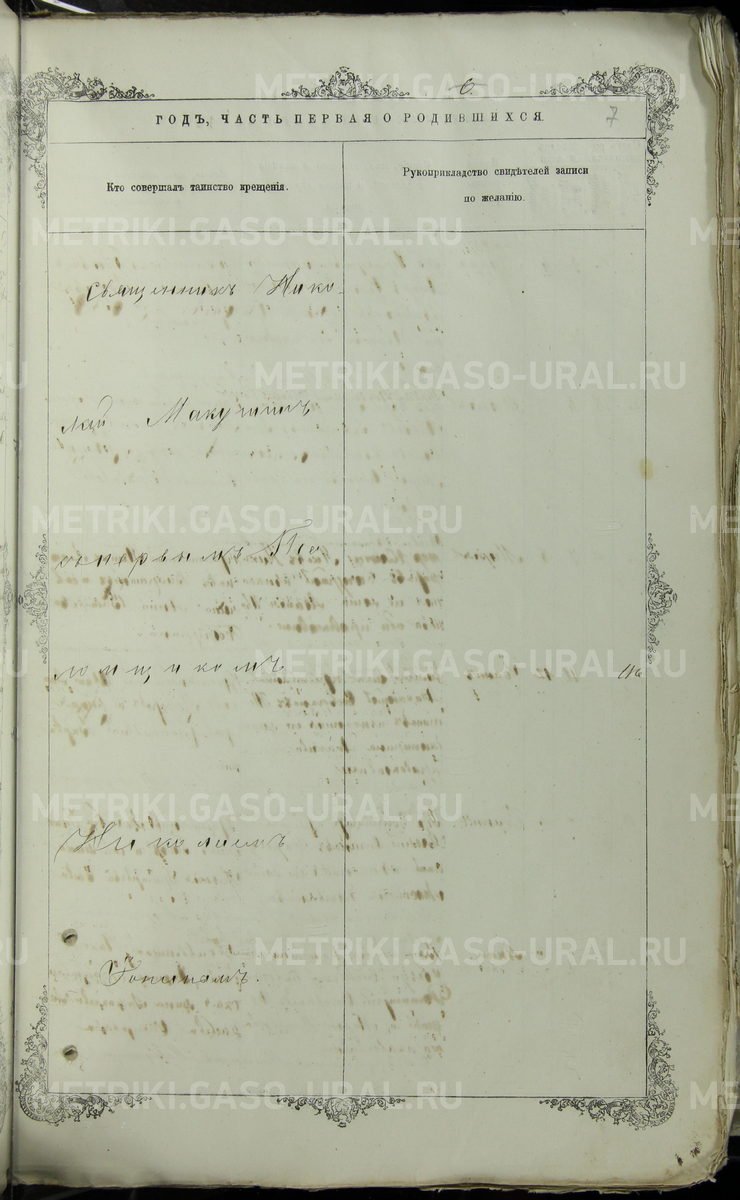 METRIKI.GASO-URAL.RU
6
7
ГОДЪ, ЧАСТЬ ПЕРВАЯ О РОДИВШИХСЯ.
Кто совершалъ таинство крещенія.
Рукоприкладство свидѣтелей записи
по желанію.
METRIKI.GASO-URAL.RU
Священникъ Нико-
METRIKI.GASO-URAL.RU
лай Макушинъ
METRIKI.GASO-URAL.RU
Пса
METRIKI.GASO-URAL.RU
ломщикомъ
116
METRIKI.GASO-URAL.RU
Николаемъ
METRIKI.GASO-URAL.RU
METRIKI.GASO-URAL.RU